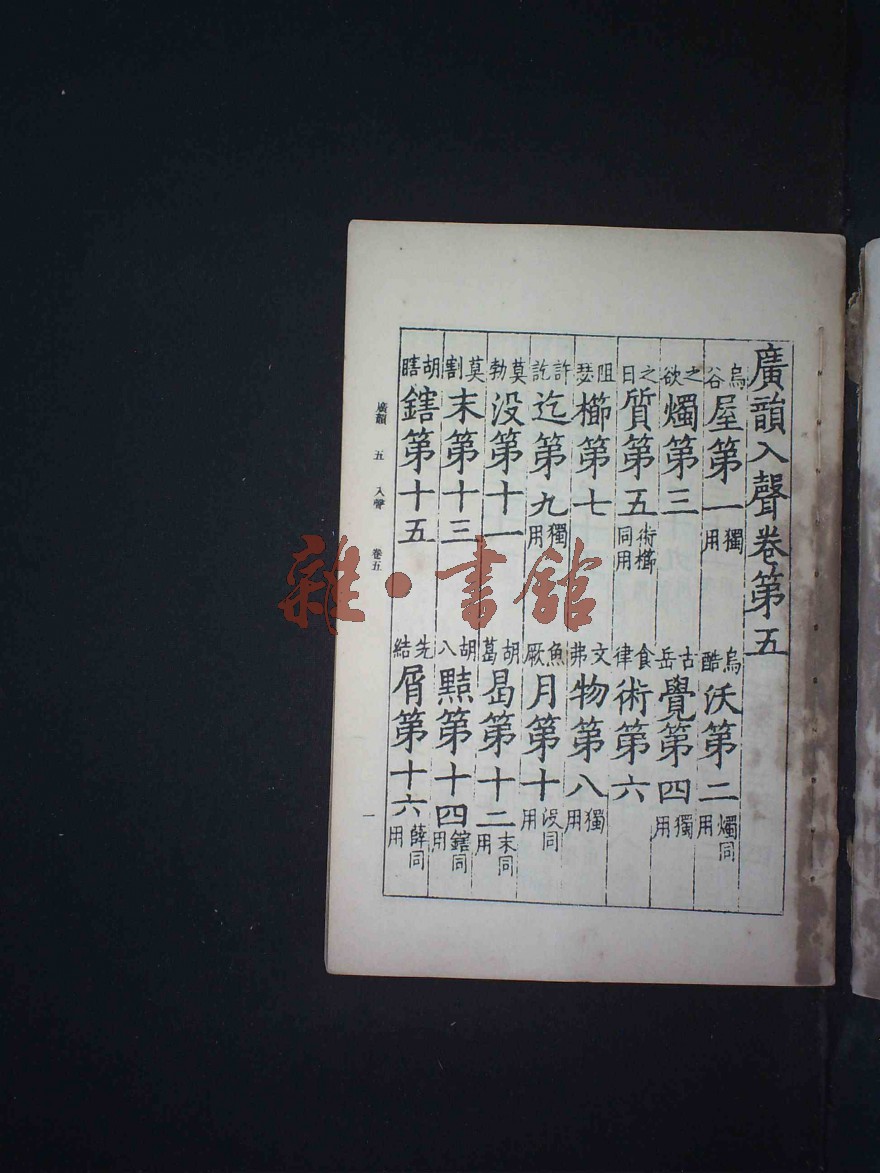 廣韻入聲卷第五
烏谷屋第一獨用
烏酷沃第二燭同用
之欲燭第三
古岳覺第四獨用
之日質第五術櫛同用
食律術第六
阻瑟櫛第七
文弗物第八獨用
許訖迄第九獨用
魚厥月第十没同用
莫勃没第十一
胡葛曷第十二末同用
莫割末第十三
胡八黠第十四鎋同用
胡瞎鎋第十五
先結屑第十六薛同用
廣韻 五 入聲 卷五 一
雜·書館